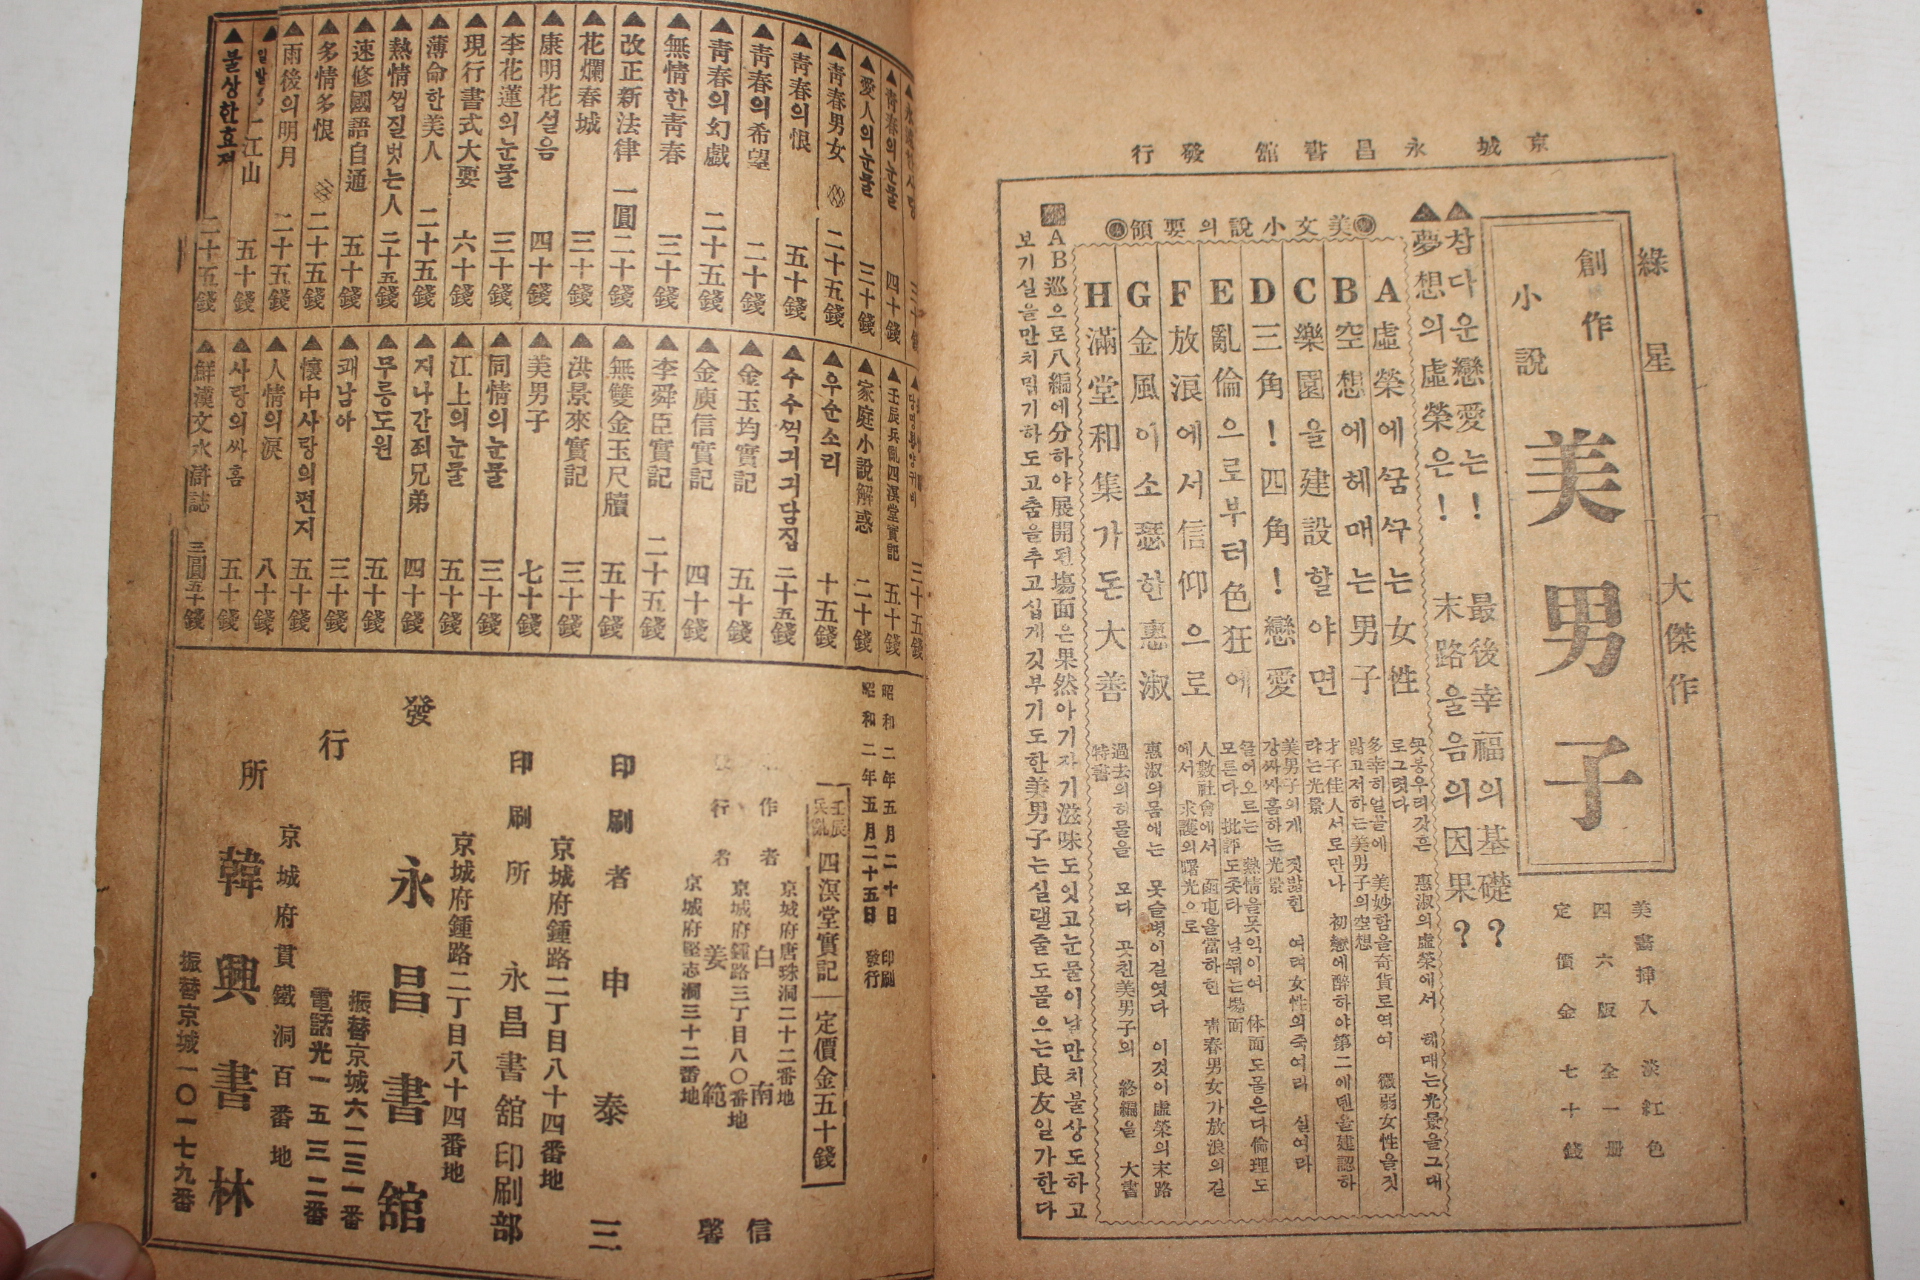 京城 永昌書館 發行
綠星 大傑作
創作
小說
美男子
美畵揷入 淡紅色
四六版 全一冊
定價金七十錢
▲참다운戀愛는! 最後幸福의基礎?
▲夢想의虛榮은! 末路울음의因果?
美文小說의要領
A 虛榮에꿈꾸는女性
B 空想에헤매는男子
C 樂園을建設할야면
D 三角!四角!戀愛
E 亂倫으로부터色狂에
F 放浪에서信仰으로
G 金風이소瑟한惠淑
H 滿堂和集가돈大善
꼿봉우리갓흔 惠淑의虛榮에서 헤매는光景을그대
로그렷다
多幸히얼골에 美妙함을奇貨로역여 微弱女性을짓
밟고저하는美男子의空想
才子佳人서로만나 初戀에醉하야第二에덴을建認하
랴는光景
美男子의게 짓밟힌 여러女性의죽여라 살여라
강싸싸홈하는光景
人數社會에서 函屯을當하흔 靑春男女가放浪의길
에서 求護의曙光으로
惠淑의몸에는 못슬병이걸엿다 이것이虛榮의末路
過去의허물을 모다 곳친美男子의 終編을 大書
特書
AB巡으로八編에分하야展開된場面은果然아기자기滋味도잇고눈물이날만치불상도하고
보기실을만치밉기하도고춤을추고십게깃부기도한美男子는실랠줄도몰으는良友일가한다
▲愛人의눈물 三十錢
▲靑春의눈물 四十錢
▲靑春男女 二十五錢
▲靑春의恨 五十錢
▲靑春의希望 二十錢
▲靑春의幻戱 二十五錢
▲無情한靑春 三十錢
▲改正新法律 一圓二十錢
▲花爛春城 三十錢
▲康明花설음 四十錢
▲李花蓮의눈물 三十錢
▲現行書式大要 六十錢
▲薄命한美人 二十五錢
▲熱情업질벗는人 二十五錢
▲速修國語自通 五十錢
▲多情多恨 二十五錢
▲雨後의明月 二十五錢
江山 五十錢
▲불상한효져 二十五錢
三十五錢
▲壬辰兵亂四溟堂實記 五十錢
▲家庭小說解惑 二十錢
▲우순소리 十五錢
▲수수걱기기담집 二十五錢
▲金玉均實記 五十錢
▲金庾信實記 四十錢
▲李舜臣實記 二十五錢
▲無雙金玉尺牘 五十錢
▲洪景來實記 三十錢
▲美男子 七十錢
▲同情의눈물 三十錢
▲江上의눈물 五十錢
▲지나간죄兄弟 四十錢
▲무릉도원 五十錢
▲쾌남아 三十錢
▲懷中사랑의편지 五十錢
▲人情의淚 八十錢
▲사랑의싸홈 五十錢
▲鮮漢文水滸誌 三圓五十錢
昭和二年五月二十日 印刷
昭和二年五月二十五日 發行
壬辰兵亂 四溟堂實記 定價金五十錢
京城府唐珠洞二十二番地
作者 白南信
京城府鍾路三丁目八〇番地
行者 姜範馨
京城府堅志洞三十二番地
印刷者 申泰三
京城府鍾路二丁目八十四番地
印刷所 永昌書舘印刷部
京城府鍾路二丁目八十四番地
發行所 永昌書舘
振替京城六二三一番
電話光一五三二番
京城府貫鐵洞百番地
韓興書林
振替京城一〇一七九番